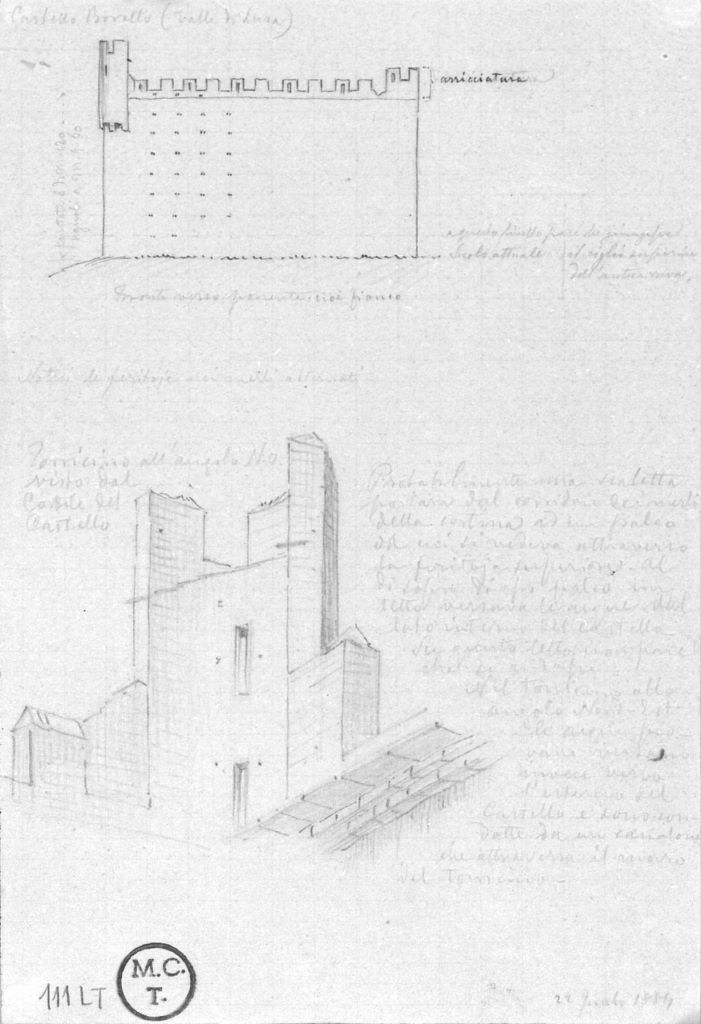 Castello Borello (Valle di Susa)
arricciatura
a questo livello pare che
Suolo attuale il ciglio superiore
dell'antica riva.
Fronte verso ponente cioè fianco
Notisi le feritoje nei merli alternati
Torricino all'angolo N.O.
visto dal
Cortile del
Castello
Probabilmente una scaletta
portava dal corridoio dei merli
della cortina ad un palco
da cui si vedeva attraverso
la feritoja superiore. Al
di sopra di esso palco un
tetto versava le acque dal
lato interno del castello
di questo tetto
Nel torricino allo
angolo Nord-Est
le acque pio-
vane versano
invece verso
l'esterno del
Castello e sono con
dotte da un canalone
che attraversa il muro
del torricino
111 LT
M.C.
T.
1884